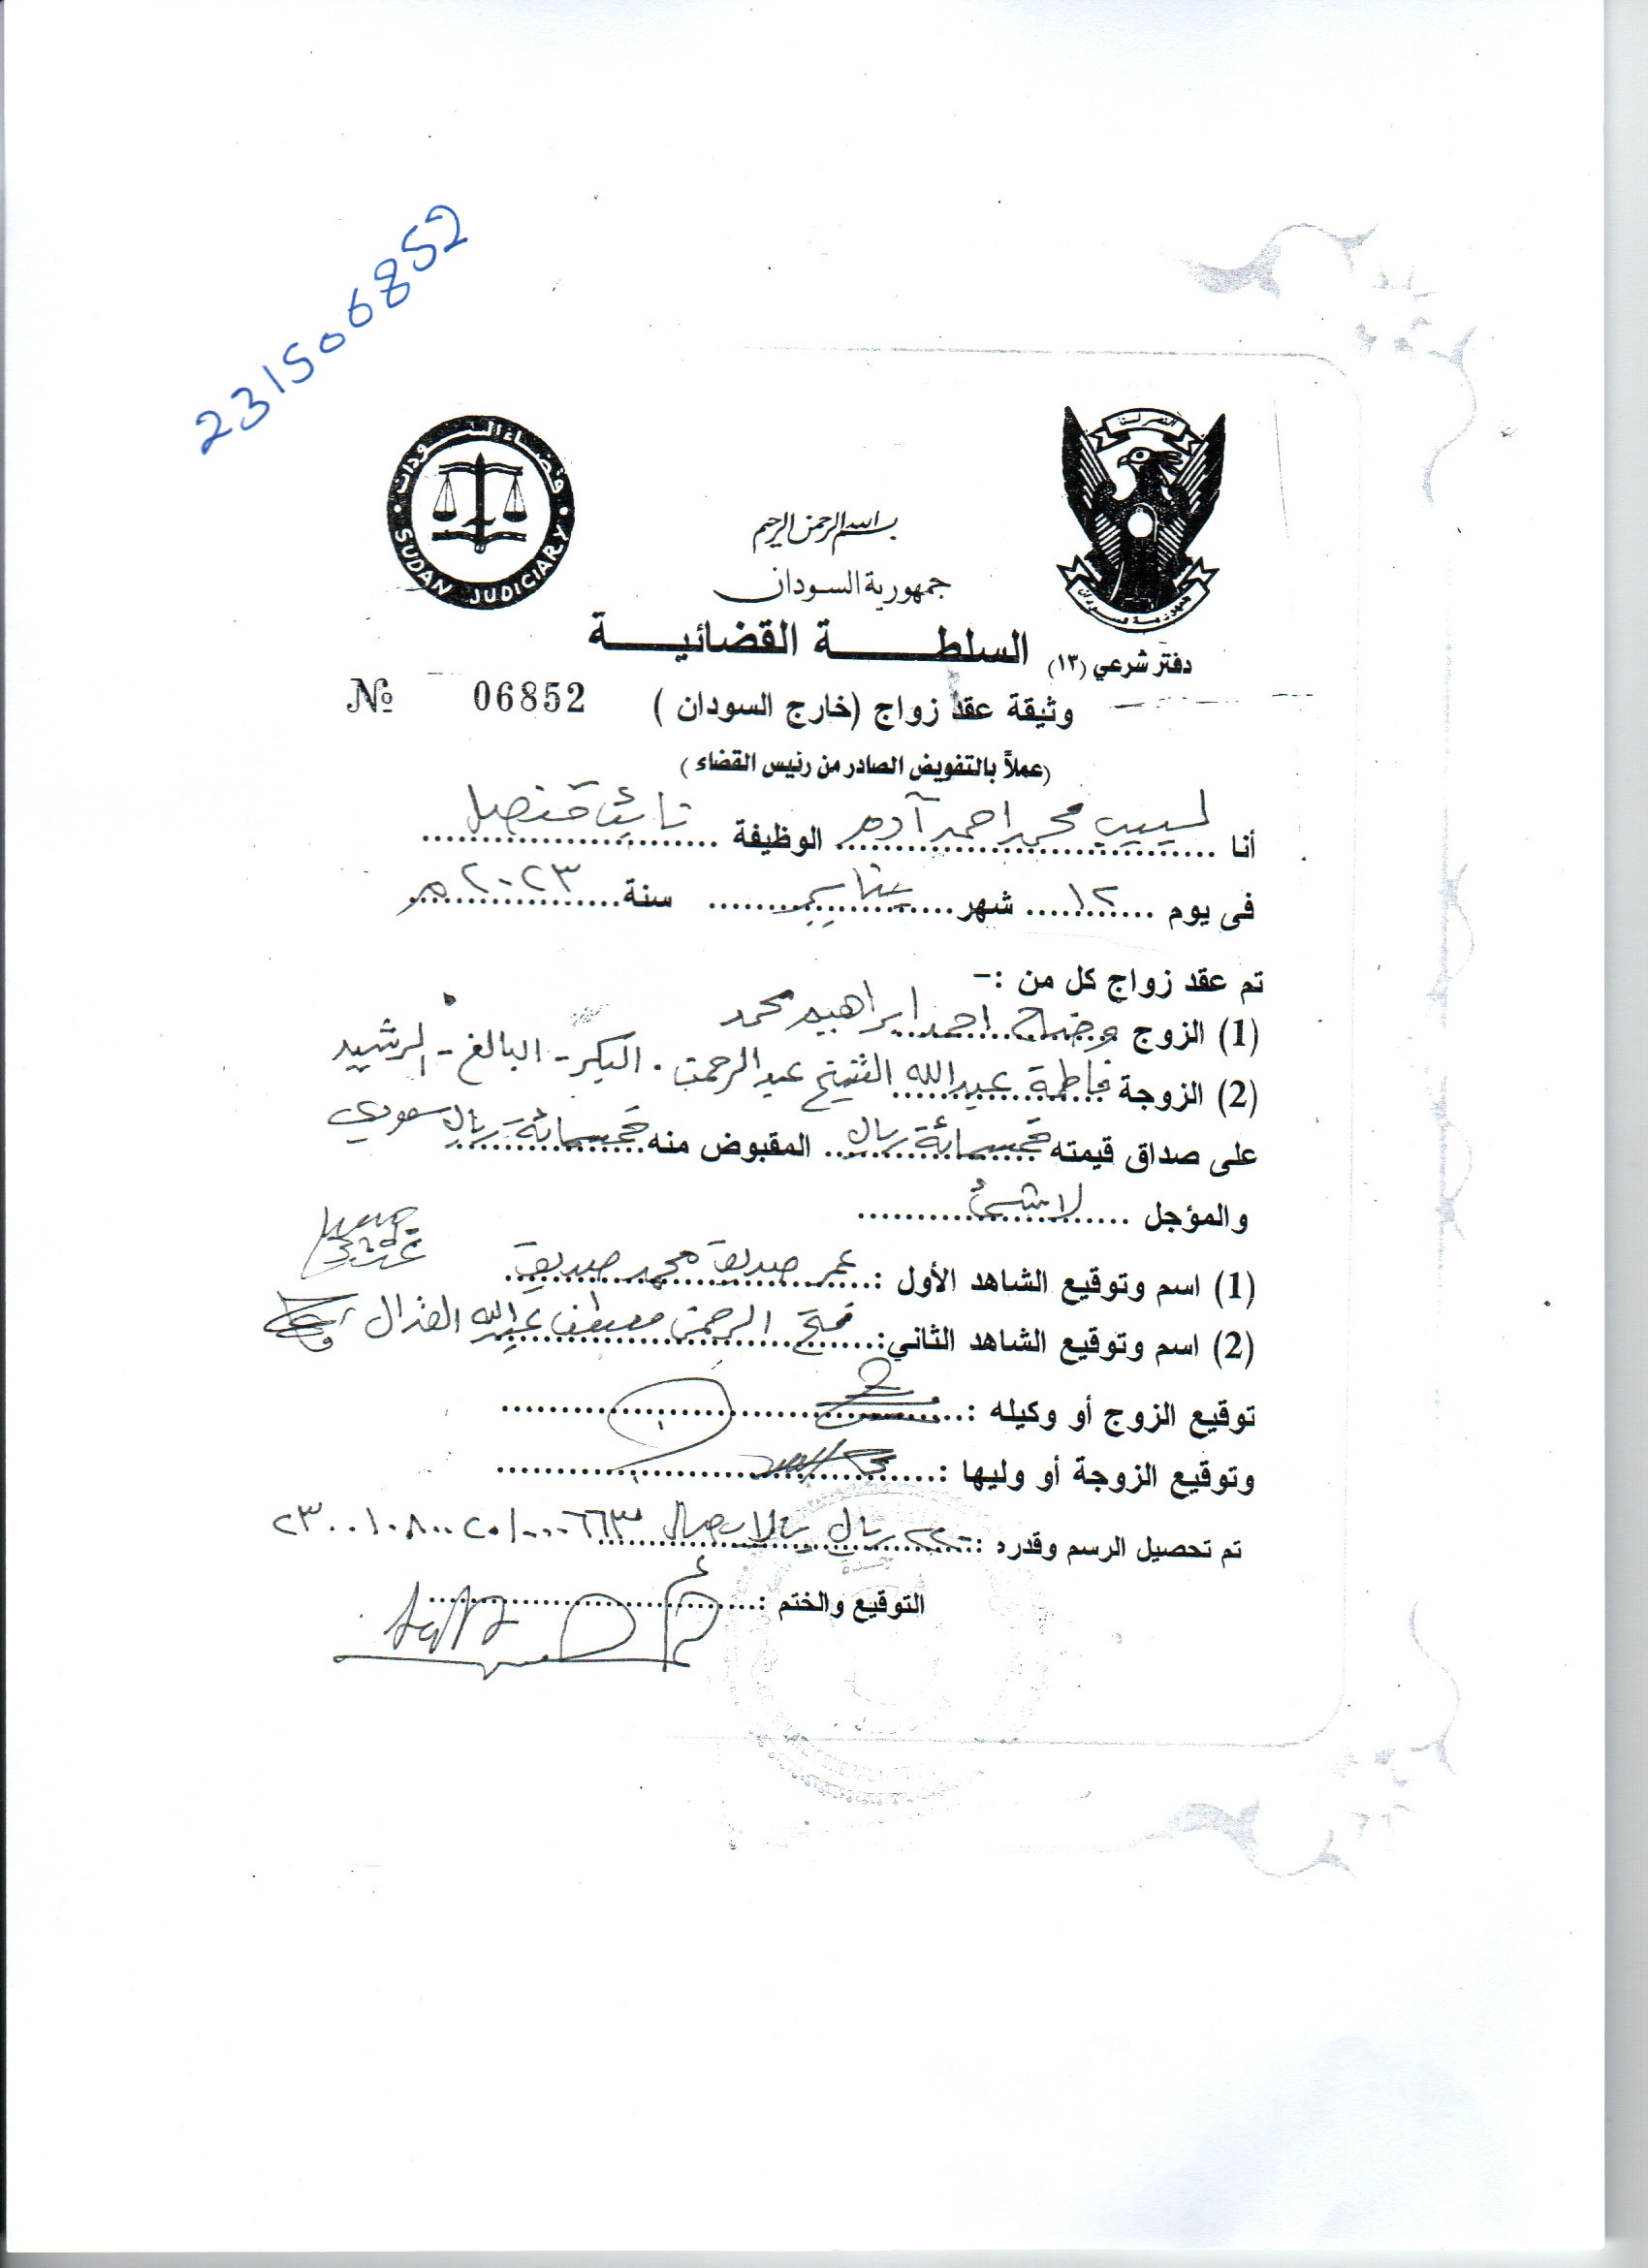 231506852
قضاء السودان
SUDAN JUDICIARY
النصر لنا
جمهورية السودان
بسم الله الرحمن الرحيم
جمهورية السودان
السلطة القضائية
دفتر شرعي (١٣)
وثيقة عقد زواج (خارج السودان )
№ 06852
(عملاً بالتفويض الصادر من رئيس القضاء )
أنا لبيب محمد احمد آدم الوظيفة نائب قنصل
فى يوم ١٢ شهر يناير سنة ٢٠٢٣م
تم عقد زواج كل من :-
(1) الزوج وضاح احمد ابراهيم محمد
(2) الزوجة فاطمة عبدالله الشيخ عبدالرحمن . البكر - البالغ - الرشيد
على صداق قيمته خمسمائة ريال المقبوض منه خمسمائة ريال سعودي
والمؤجل لا شئ
(1) اسم وتوقيع الشاهد الأول : عمر صديق محمد صديق
(2) اسم وتوقيع الشاهد الثاني: فتح الرحمن مصطفى عبدالله
توقيع الزوج أو وكيله :
وتوقيع الزوجة أو وليها :
تم تحصيل الرسم وقدره : ٢٢٠ ريال بالايصال
التوقيع والختم :
جدة